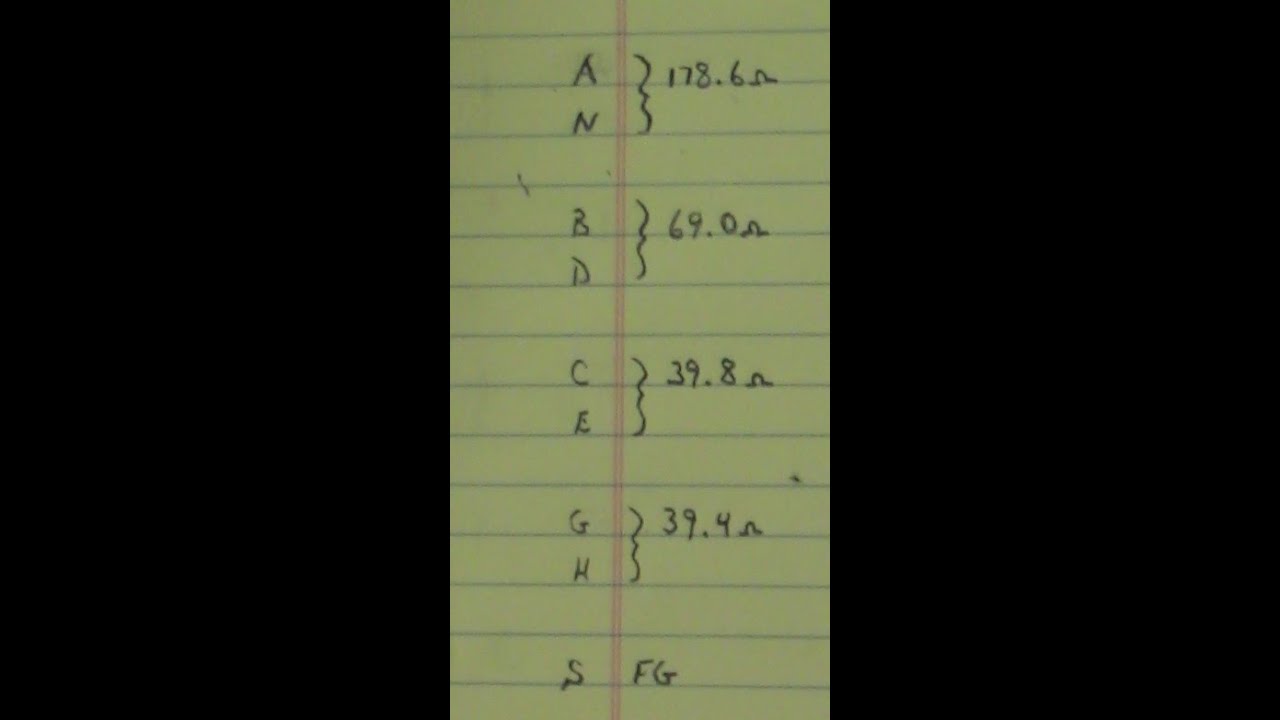 A } 178.6Ω
N
B } 69.0Ω
D
C } 39.8Ω
E
G } 39.4Ω
H
S FG